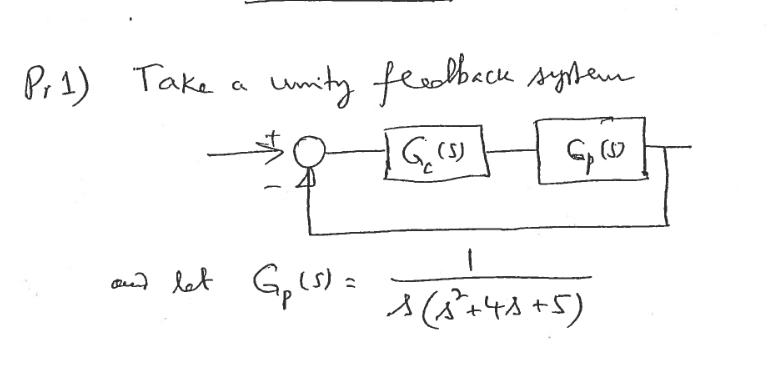 Pr 1) Take a unity feedback system
+ Gc(s) Gp(s)
-
and let Gp(s) = 1 / s(s²+4s+5)